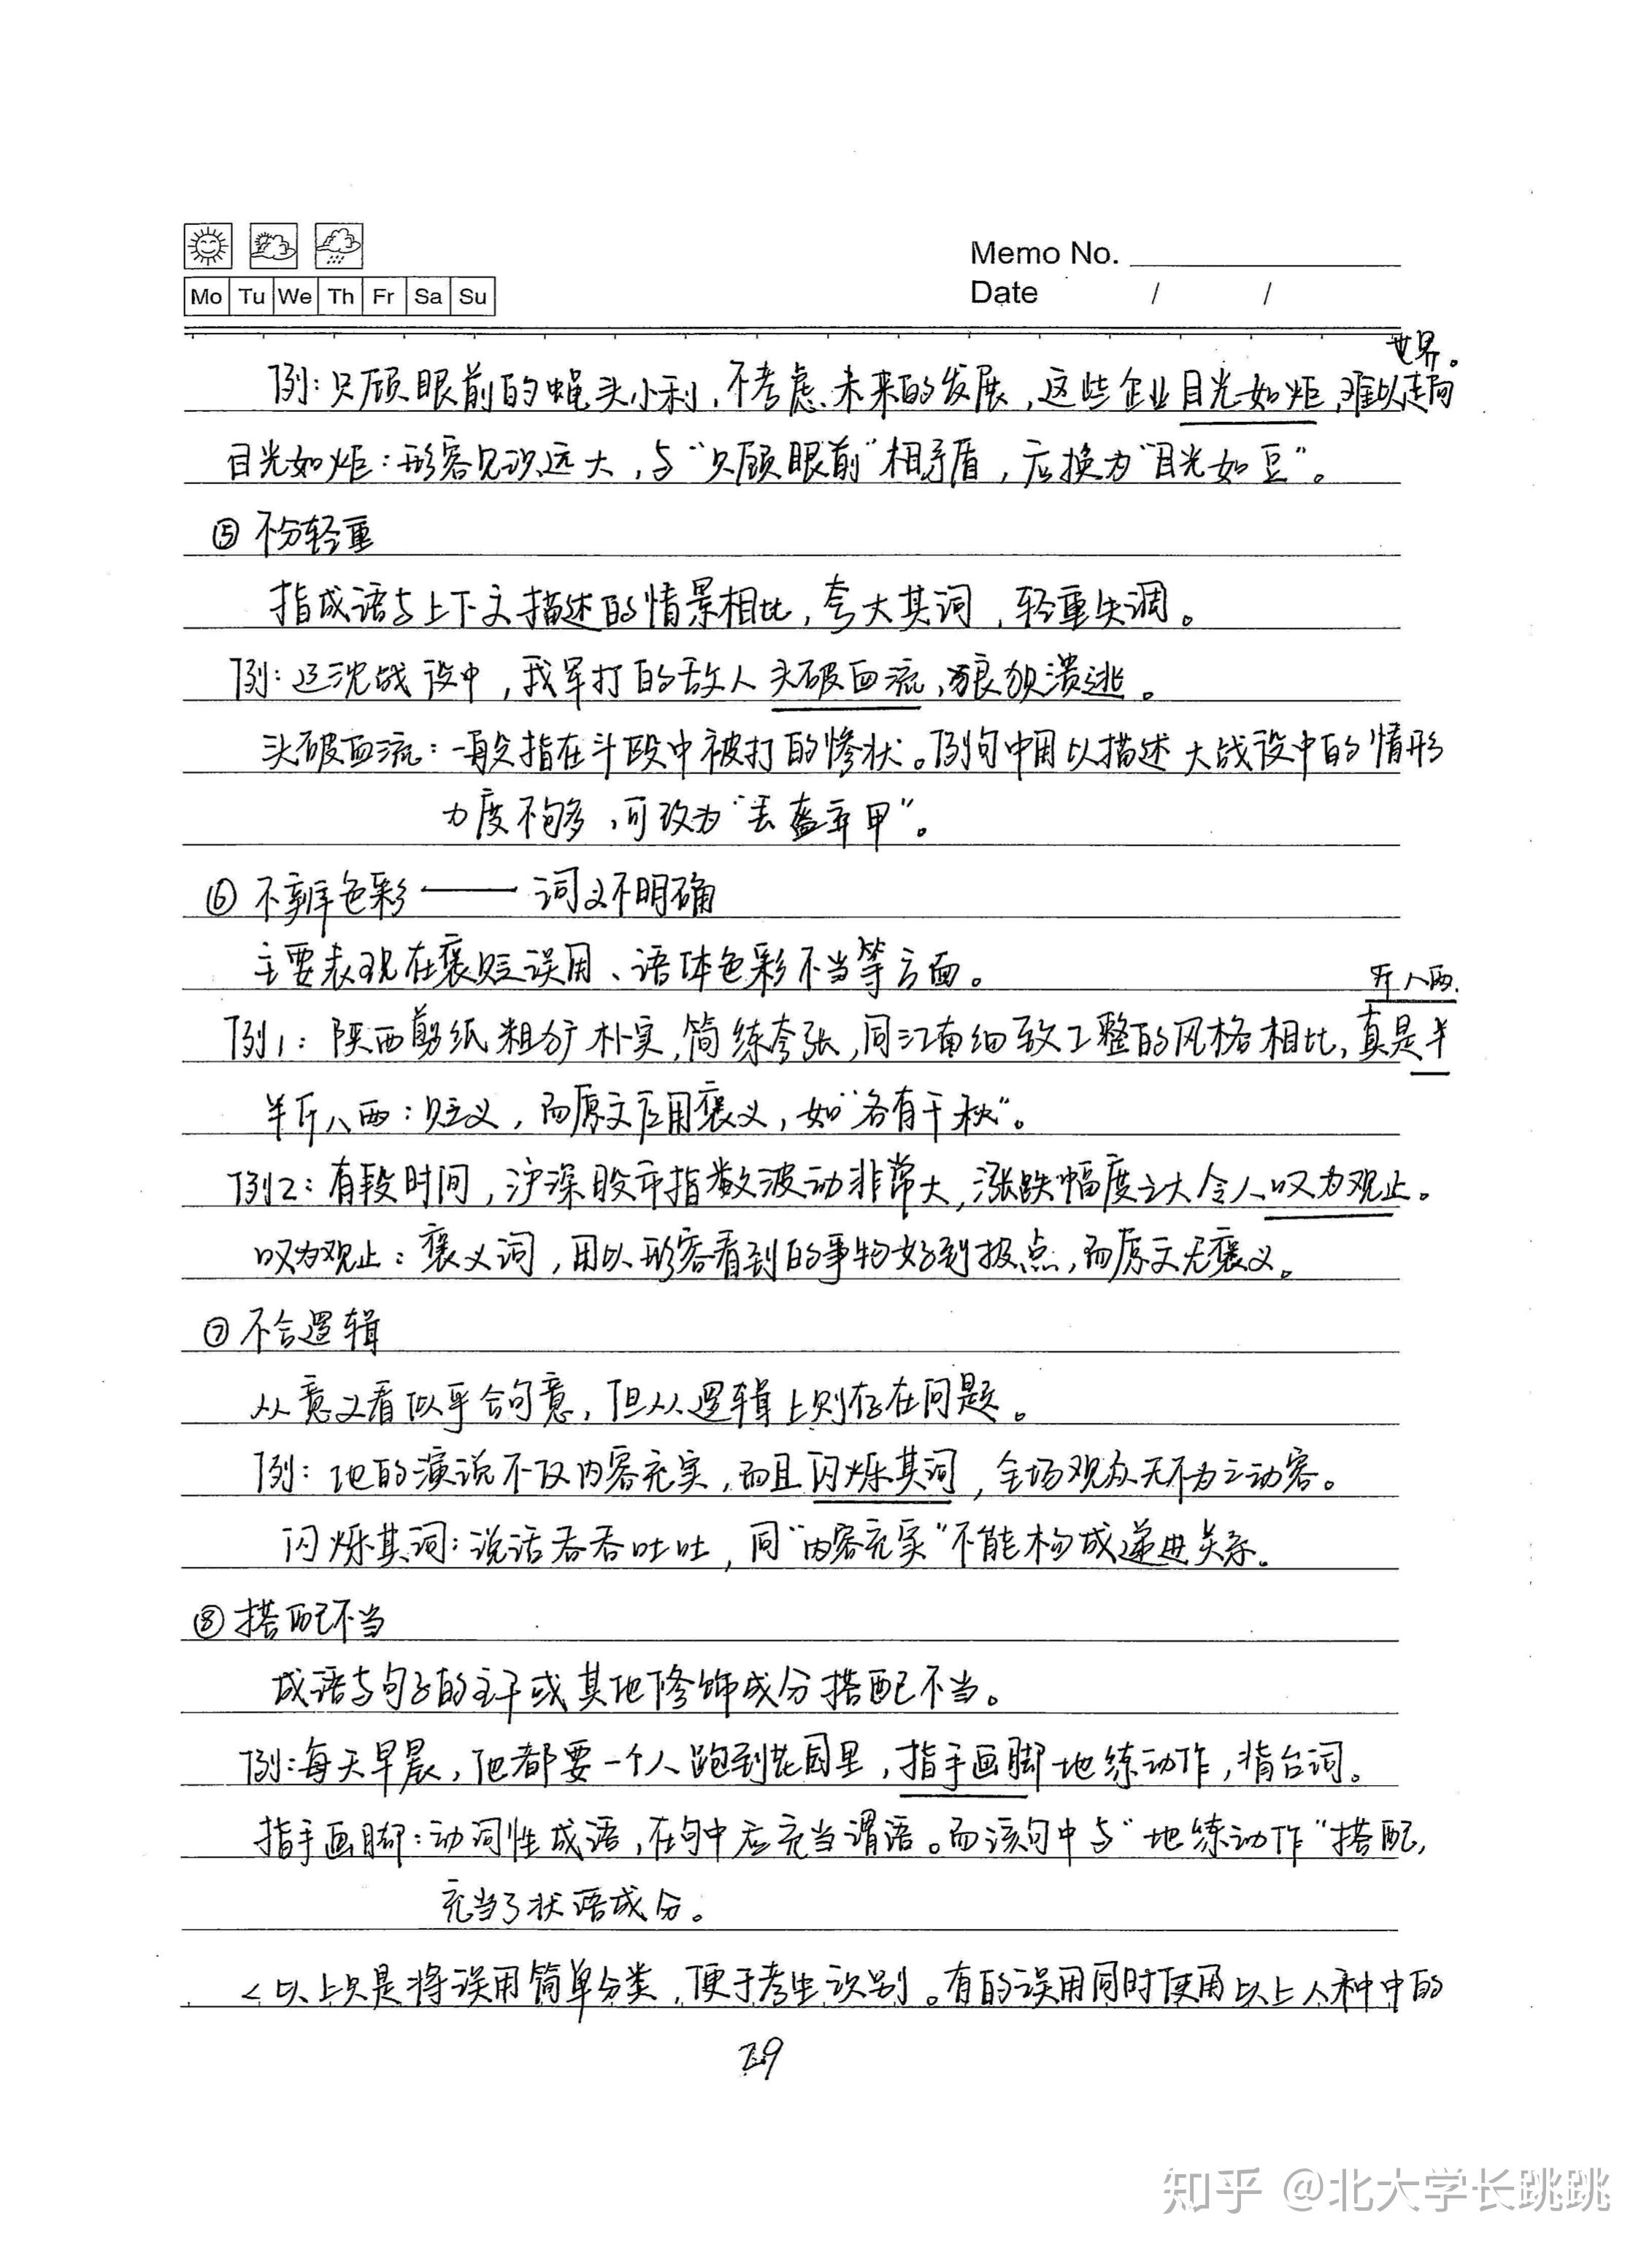 Memo No.
Mo Tu We Th Fr Sa Su
Date / /
例:只顾眼前的蝇头小利,不考虑未来的发展,这些企业目光如炬,难以走向世界。
目光如炬:形容见识远大,与“只顾眼前”相矛盾,应换为“目光如豆”。
⑤ 不分轻重
指成语与上下文描述的情景相比,夸大其词,轻重失调。
例:辽沈战役中,我军打的敌人头破血流,狼狈溃逃。
头破血流:一般指在斗殴中被打的惨状。例句中用以描述大战役中的情形
力度不够,可改为“丢盔弃甲”。
⑥ 不辨色彩——词义不明确
主要表现在褒贬误用、语体色彩不当等方面。
例1:陕西剪纸粗犷朴实,简练夸张,同江南细致工整的风格相比,真是半斤八两.
半斤八两:贬义,而原文应用褒义,如“各有千秋”。
例2:有段时间,沪深股市指数波动非常大,涨跌幅度之大令人叹为观止。
叹为观止:褒义词,用以形容看到的事物好到极点,而原文无褒义。
⑦ 不合逻辑
从意义看似乎合句意,但从逻辑上则存在问题。
例:他的演说不仅内容充实,而且闪烁其词,全场观众无不为之动容。
闪烁其词:说话吞吞吐吐,同“内容充实”不能构成递进关系。
⑧ 搭配不当
成语与句子的主干或其他修饰成分搭配不当。
例:每天早晨,他都要一个人跑到花园里,指手画脚地练动作,背台词。
指手画脚:动词性成语,在句中应充当谓语。而该句中与“地练动作”搭配,
充当了状语成分。
<以上只是将误用简单分类,便于考生识别。有的误用同时使用以上八种中的
29
知乎 @北大学长跳跳